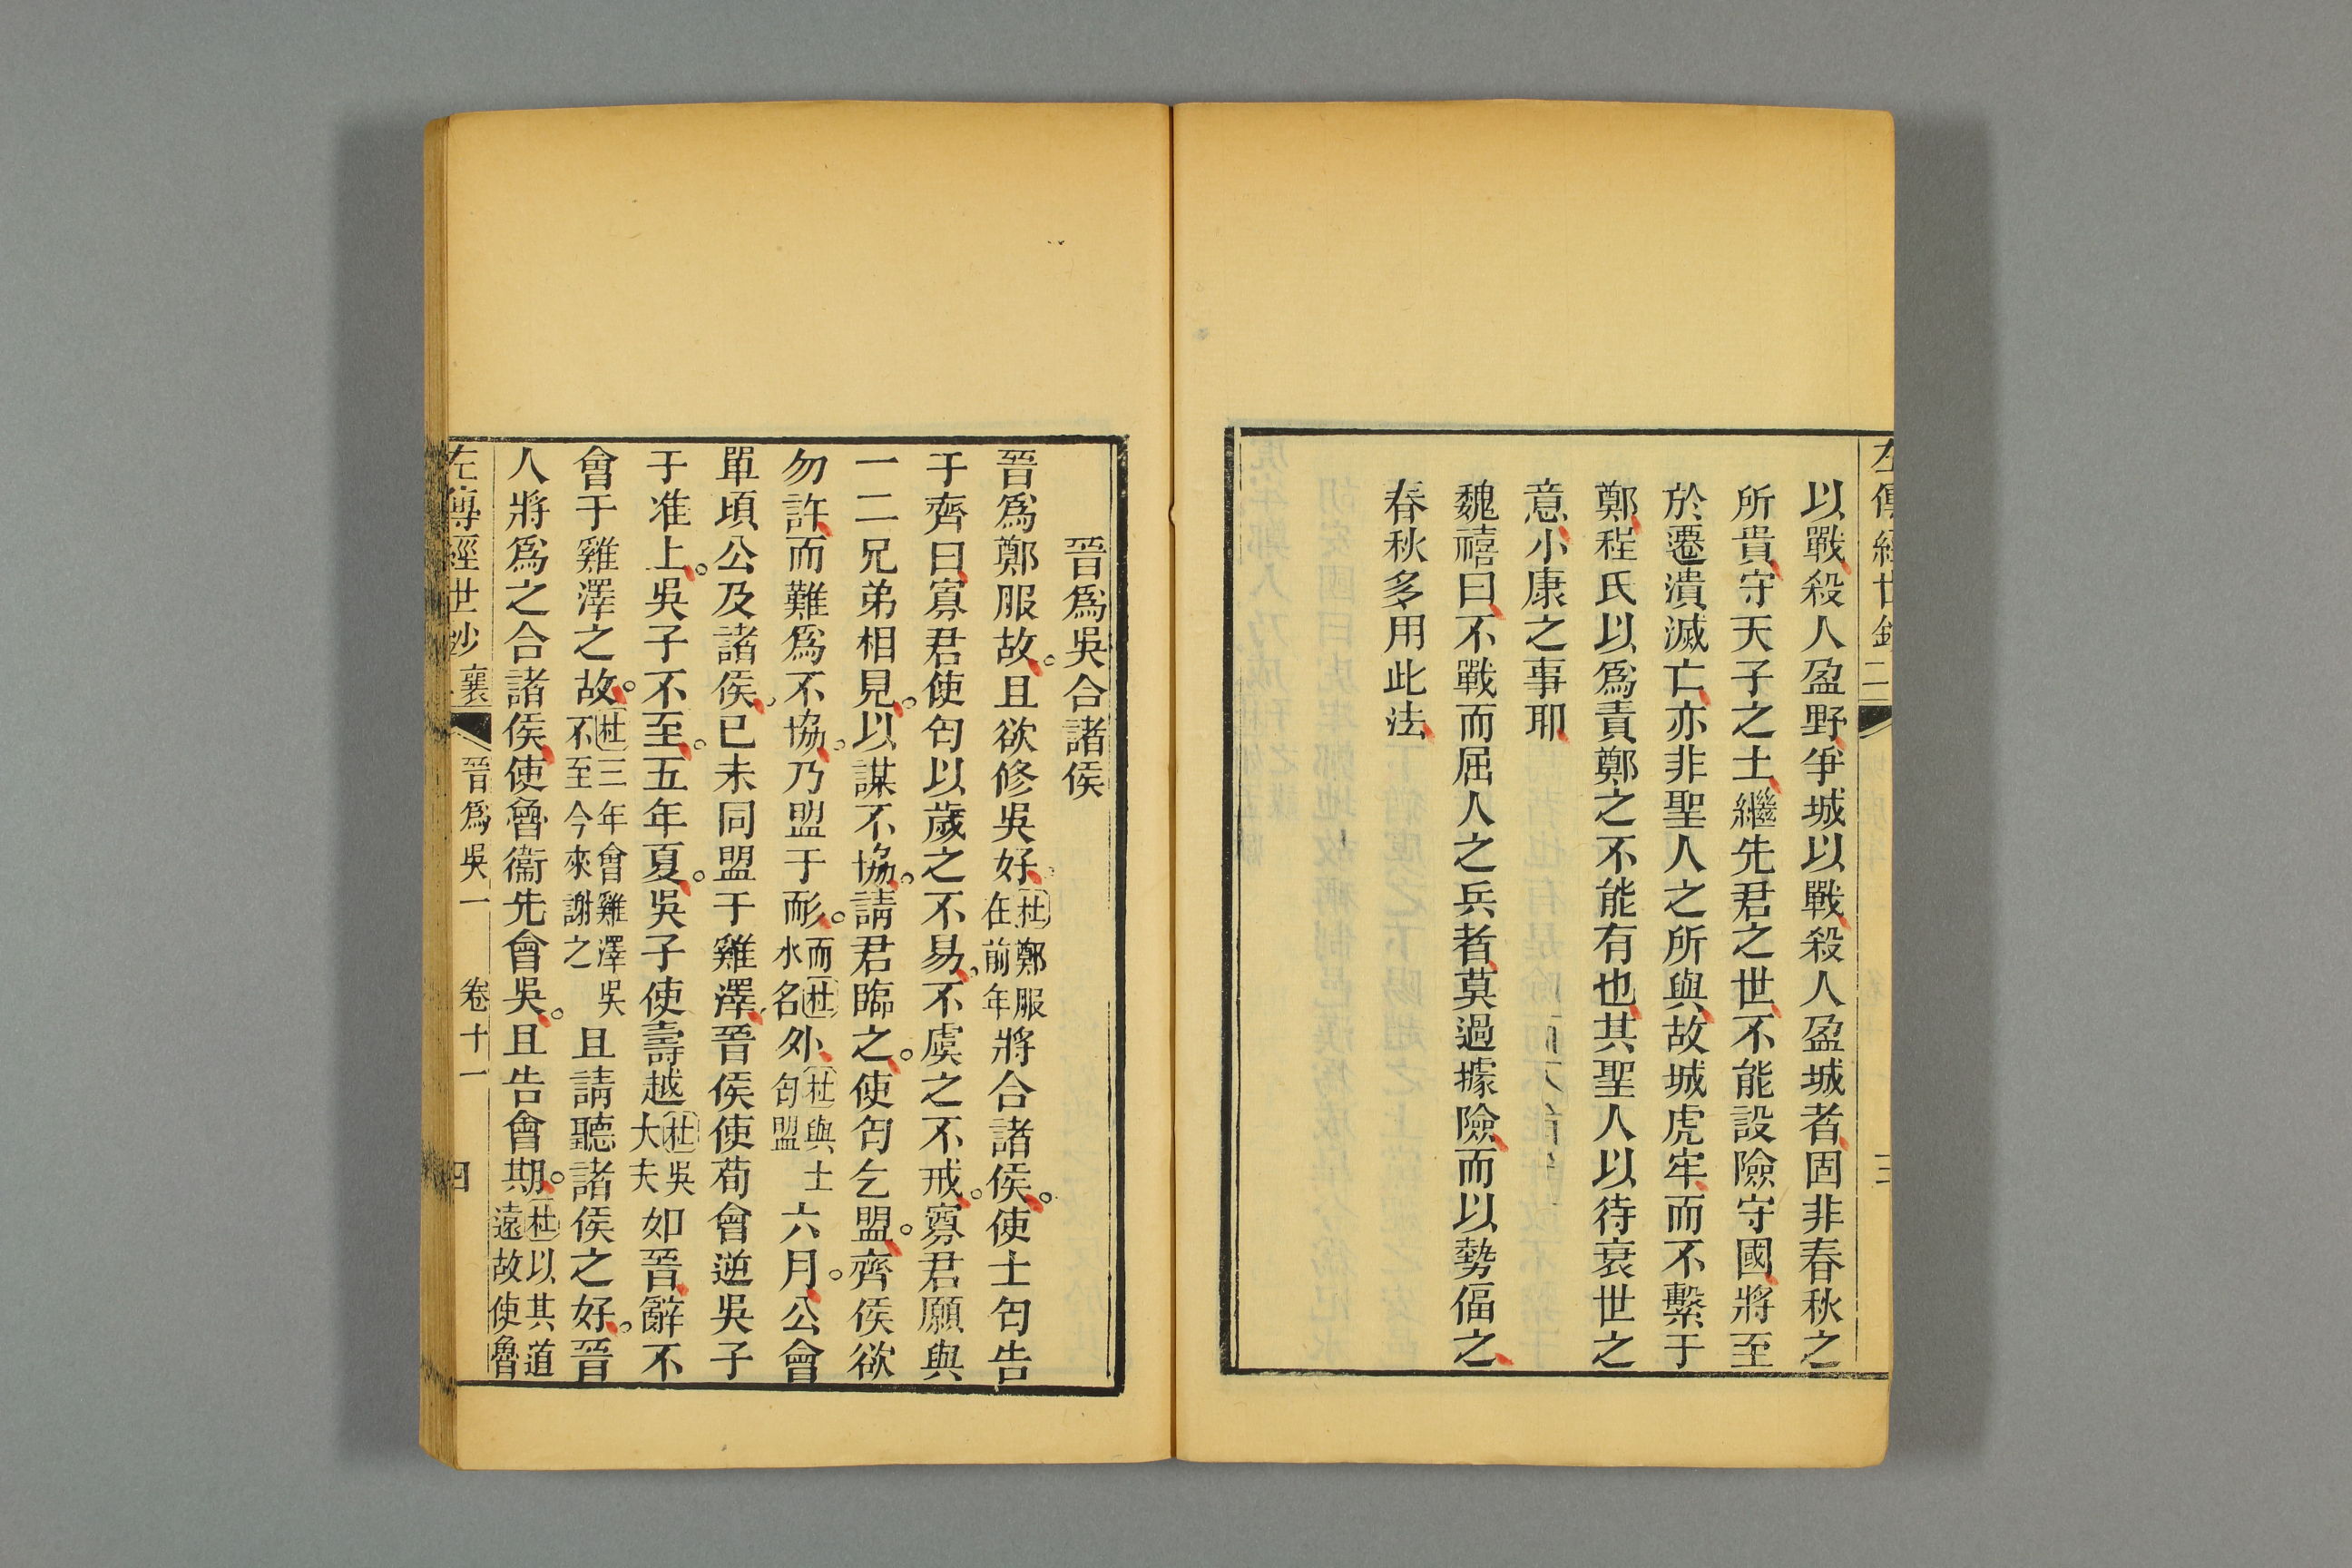 以戰殺人盈野爭城以戰殺人盈城者固非春秋之
所貴守天子之土繼先君之世不能設險守國將至
於遷潰滅亡亦非聖人之所與故城虎牢而不繫于
鄭程氏以為責鄭之不能有也其聖人以待衰世之
意小康之事耶
魏禧曰不戰而屈人之兵者莫過據險而以勢偪之
春秋多用此法
晉爲吳合諸侯
晉爲鄭服故且欲修吳好杜鄭服在前年將合諸侯使士匄告
于齊曰寡君使匄以歲之不易不虞之不戒寡君願與
一二兄弟相見以謀不協請君臨之使匄乞盟齊侯欲
勿許而難爲不協乃盟于耏而杜水名外杜與士匄盟六月公會
單頃公及諸侯己未同盟于雞澤晉侯使荀會逆吳子
于淮上吳子不至五年夏吳子使壽越杜吳大夫如晉辭不
會于雞澤之故杜三年會雞澤吳不至今來謝之且請聽諸侯之好晉
人將爲之合諸侯使魯衞先會吳且告會期杜以其道遠故使魯
左傳經世鈔 襄 晉爲吳一 卷十一 四